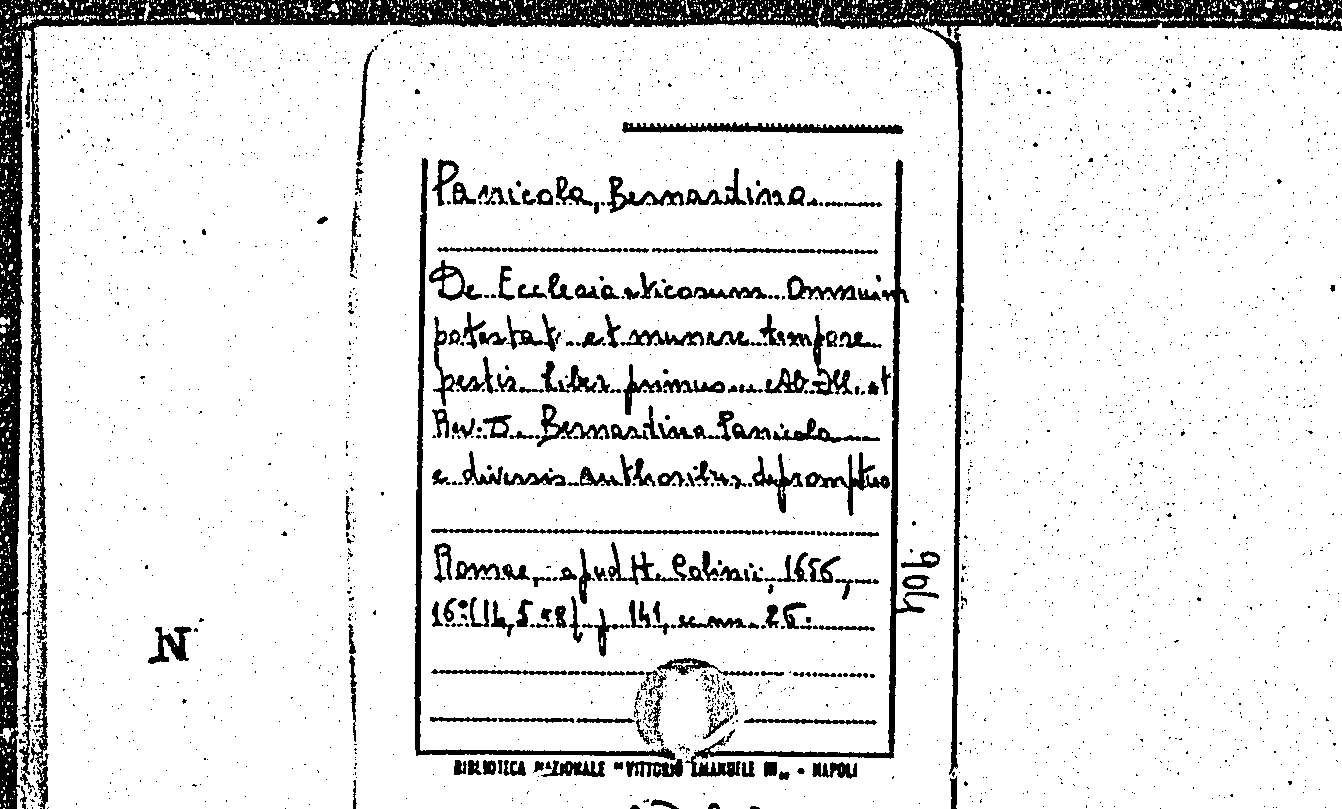 Panicola, Bernardino.
De Ecclesiasticorum Omnuim
potestati et munere tempore
pestis. Liber primus... Ab Ill. et
Rev. D. Bernardino Panicola
e diversis authoribus depromptus
Romae, apud H. Colinii, 1656,
16° p. 141, cc. nn. 26.
904
N
BIBLIOTECA NAZIONALE "VITTORIO EMANUELE III" - NAPOLI